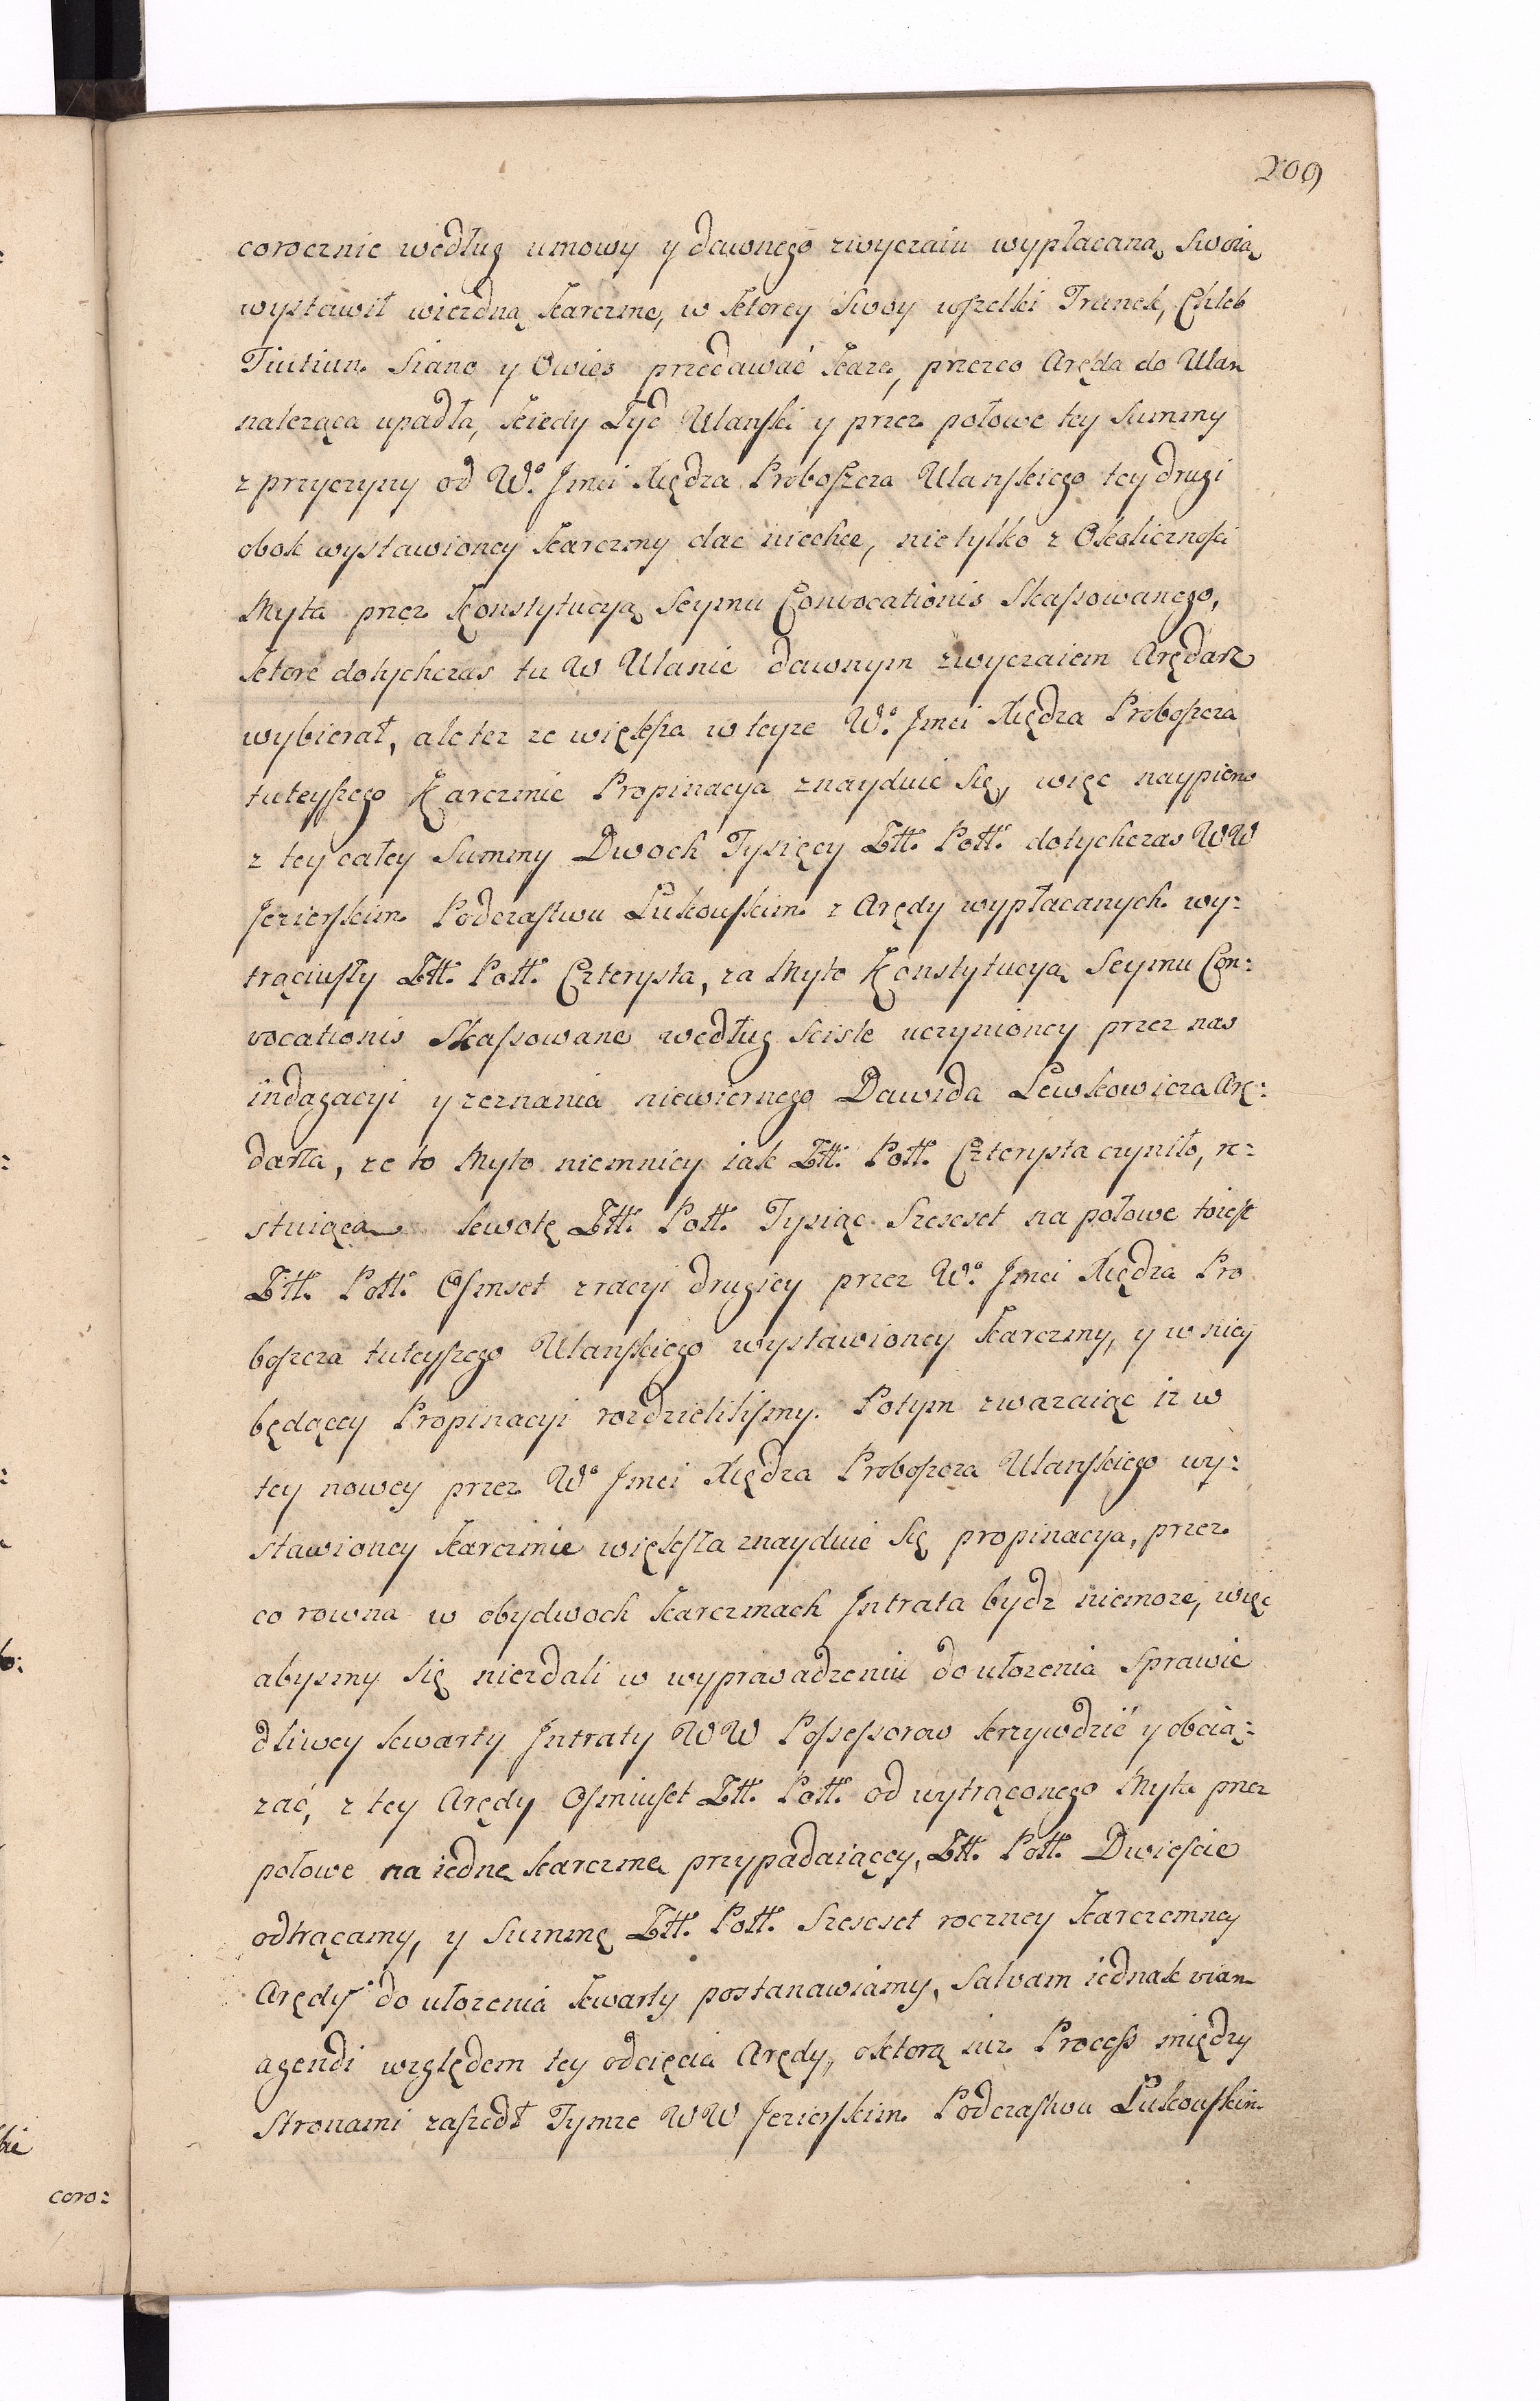 209
corocznie według umowy y dawnego zwyczaiu wypłacaną, swoią
wystawił wiezdną karczmę, w ktorey swoy wszelki Trunek, Chleb
Tiutiun Siano y Owies przedawać każe, przezco Aręda do Ulan
naleząca upadła, kiedy Zyd Ulanski y przez połowe tey Summy
z przyczyny od W.º Jmci Xiędza Proboszcza Ulanskiego tey drugi
obok wystawioney karczmy dac niechce, nie tylko z Okolicznosci
Myta przez Konstytucyą Seymu Convocationis Skassowanego,
ktore dotychczas tu w Ulanie dawnym zwyczaiem Arędarz
wybierał, ale tez ze większa w teyze W.º Jmci Xiędza Proboszcza
tuteyszego Karczmie Propinacya znayduie się, więc naypierw
z tey całey Summy Dwoch Tysięcy Ztt. Poll. dotychczas WW
Jezierskim Podczastwu Łukowskim z Arędy wypłacanych wy:
trąciwszy Ztt. Poll. Czterysta, za Myto Konstytucyą Seymu Con:
vocationis Skassowane według scisle uczynioney przez nas
indagacyi y zeznania niewiernego Dawida Lewkowicza Arę:
darza, ze to Myto niemniey iak Ztt. Poll. Czterysta czyniło, re:
stuiącą kwotę Ztt. Poll. Tysiąc Szescset na połowe toiest
Ztt. Poll. Osmset z racyi drugiey przez W.º Jmci Xiędza Pro
boszcza tuteyszego Ulanskiego wystawioney karczmy, y w niey
będącey Propinacyi rozdzielilismy. Potym zwazaiąc iz w
tey nowey przez W.º Jmci Xiędza Proboszcza Ulanskiego wy:
stawioney karczmie większa znayduie się propinacya, przez
co rowna w obydwoch karczmach Jntrata bydz niemoze, więc
abysmy się niezdali w wyprowadzeniu do ułozenia sprawie
dliwey kwarty Jntraty WW Possessorow krzywdzić y obcią:
zać, z tey Arędy Osmiuset Ztt. Poll. od wytrąconego Myta przez
połowe na iednę karczmę przypadaiącey, Ztt. Poll. Dwiescie
odtrącamy, y Summę Ztt. Poll. Szescset roczney karczemney
Arędy do ułozenia kwarty postanawiamy, Salvam iednak viam
agendi względem tey odcięcia Arędy, oktorą iuz Process między
Stronami zaszedł Tymze WW Jezierskim Podczastwu Łukowskim
coro: